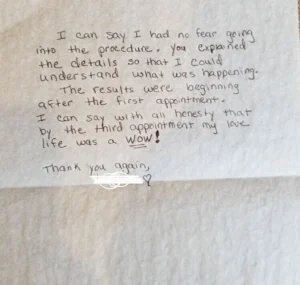 I can say I had no fear going
into the procedure. you explained
the details so that I could
understand what was happening.
The results were beginning
after the first appointment.
I can say with all honesty that
by the third appointment my love
life was a WOW!
Thank you again,